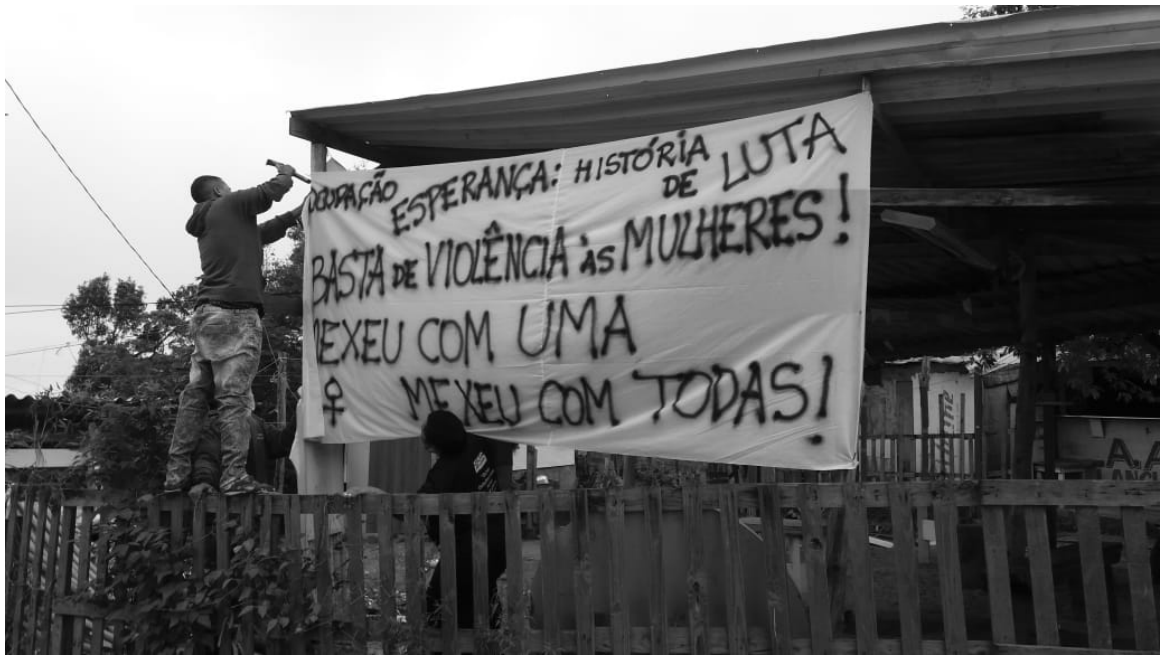 OCUPAÇÃO ESPERANÇA: HISTÓRIA DE LUTA
BASTA DE VIOLÊNCIA ÀS MULHERES!
MEXEU COM UMA
♀ MEXEU COM TODAS!
A.A